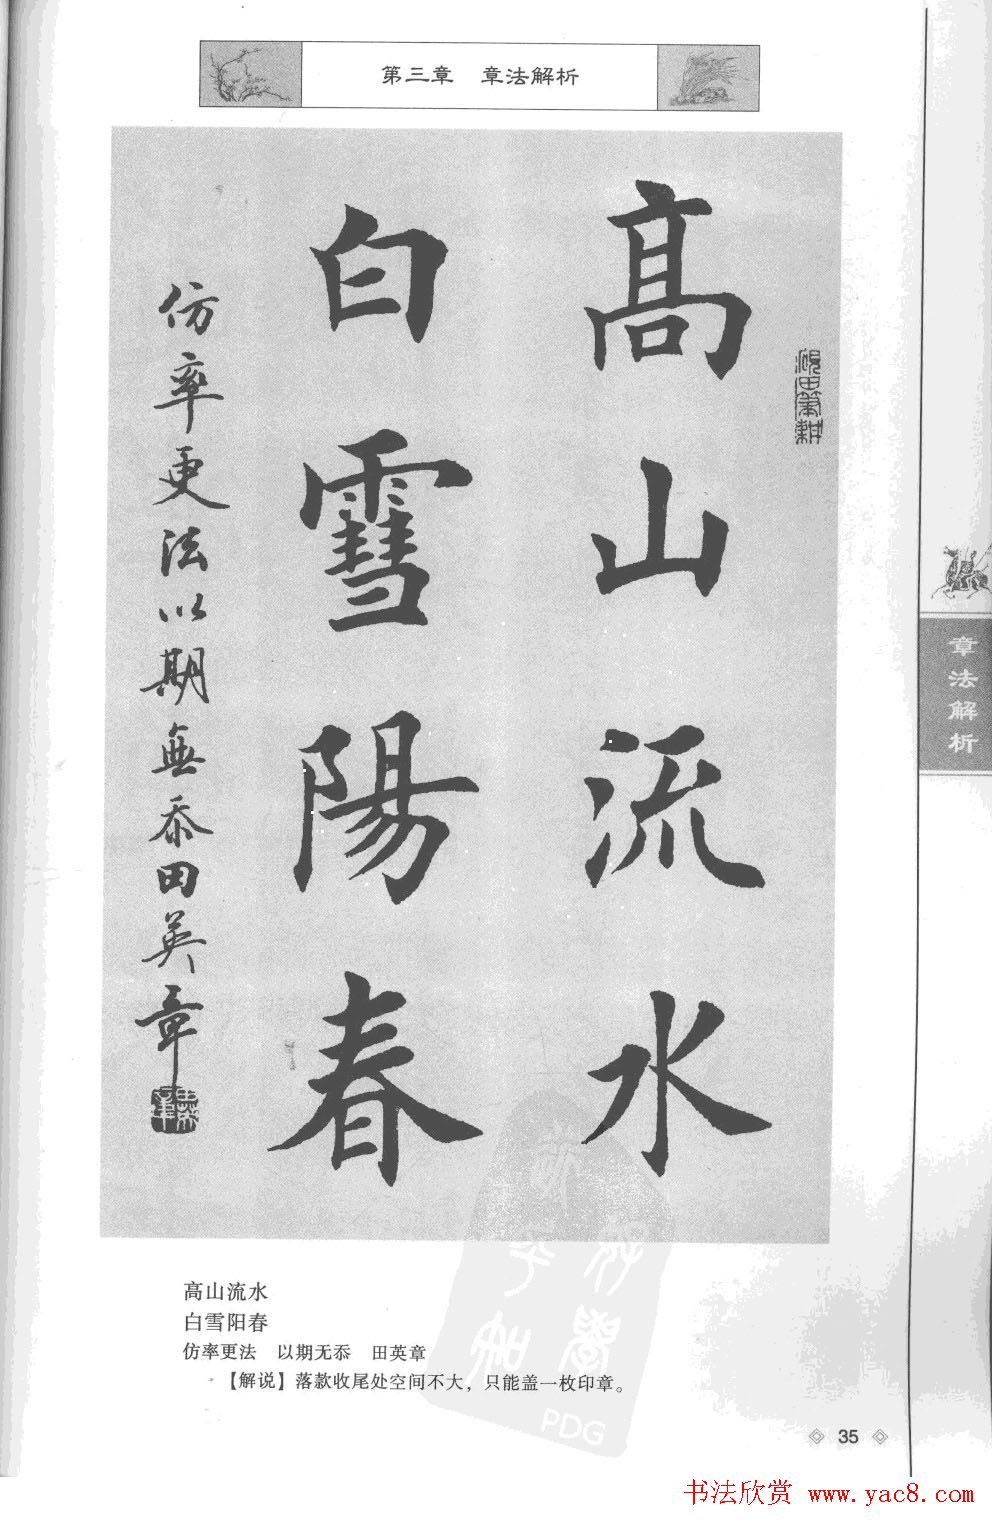 第三章 章法解析
高山流水
白雪陽春
仿率更法以期無忝田英章
章法解析
高山流水
白雪阳春
仿率更法 以期无忝 田英章
【解说】落款收尾处空间不大，只能盖一枚印章。
PDG
35
书法欣赏 www.yac8.com